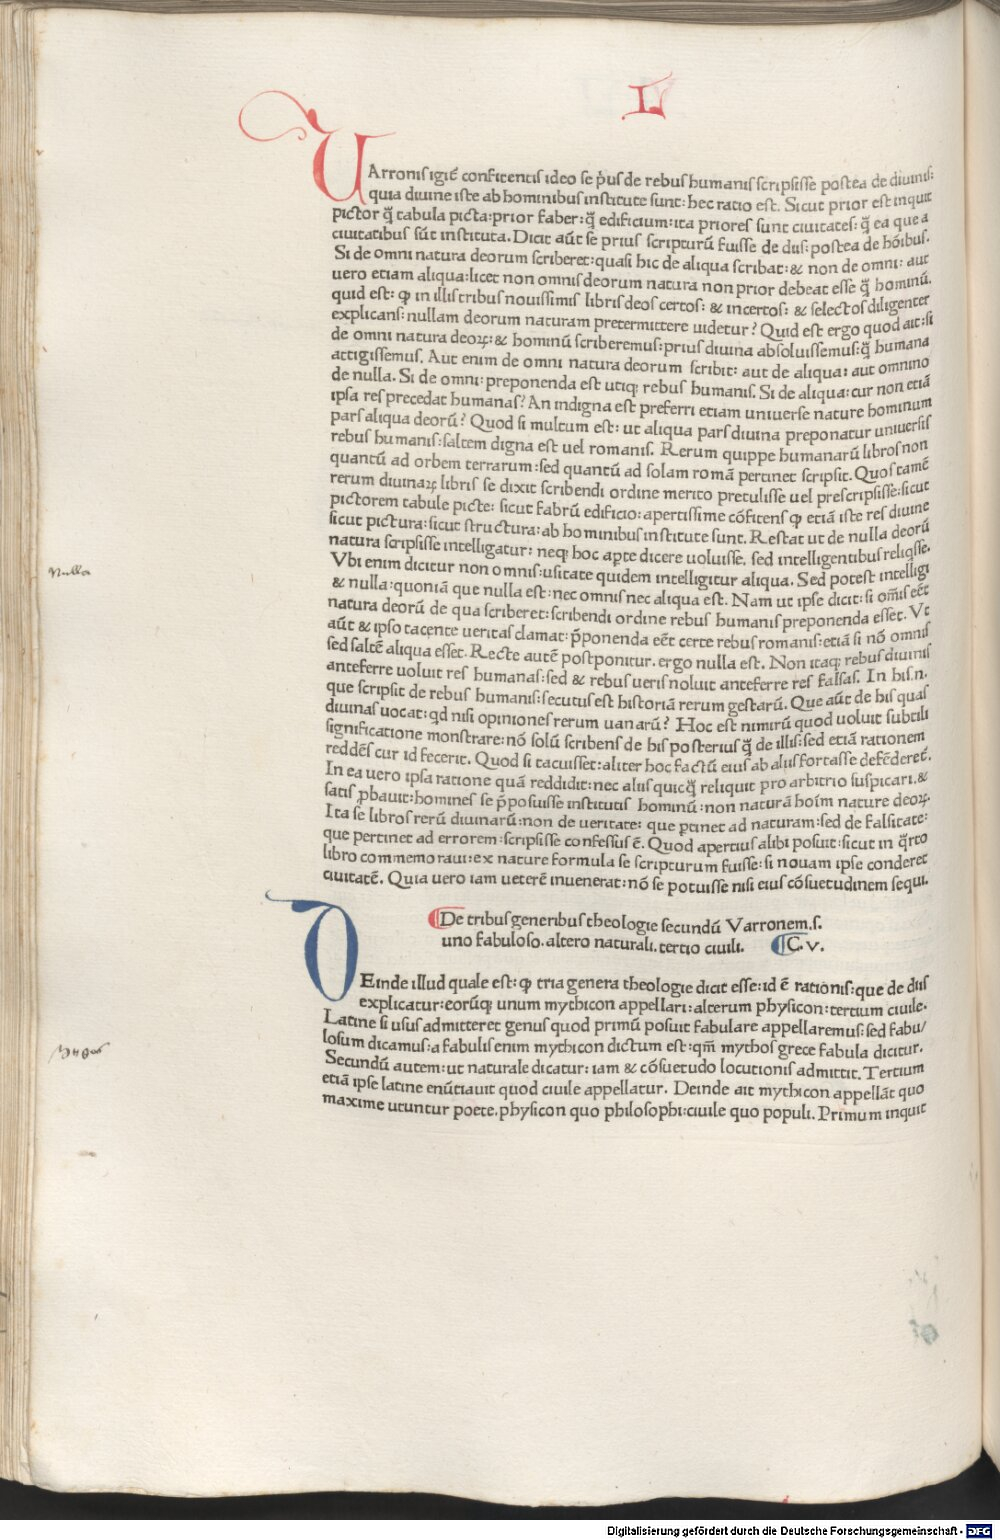 L
VArronis igit̃ confitentis ideo se p̃us de rebus humanis scripsisse postea de diuinis:
quia diuine iste ab hominibus institute sunt: hec ratio est. Sicut prior est inquit
pictor q̃ tabula picta: prior faber: q̃ edificium: ita priores sunt ciuitates: q̃ ea que a
ciuitatibus sũt instituta. Dicit aũt se prius scripturũ fuisse de diis: postea de hõibus.
Si de omni natura deorum scriberet: quasi hic de aliqua scribat: & non de omni: aut
uero etiam aliqua: licet non omnis deorum natura non prior debeat esse q̃ hominũ.
quid est: ꝙ in illis tribus nouissimis libris deos certos: & incertos: & selectos diligenter
explicans: nullam deorum naturam pretermittere uidetur? Quid est ergo quod ait: si
de omni natura deoꝝ: & hominũ scriberemus: prius diuina absoluissemus: q̃ humana
attigissemus. Aut enim de omni natura deorum scribit: aut de aliqua: aut omnino
de nulla. Si de omni: preponenda est utiq; rebus humanis. Si de aliqua: cur non etiã
ipsa res precedat humanas? An indigna est preferri etiam uniuerse nature hominum
pars aliqua deorũ? Quod si multum est: ut aliqua pars diuina preponatur uniuersis
rebus humanis: saltem digna est uel romanis. Rerum quippe humanarũ libros non
quantũ ad orbem terrarum: sed quantũ ad solam romã pertinet scripsit. Quos tamẽ
rerum diuinaꝝ libris se dixit scribendi ordine merito pretulisse uel prescripsisse: sicut
pictorem tabule picte: sicut fabrũ edificio: apertissime cõfitens ꝙ etiã iste res diuine
sicut pictura: sicut structura: ab hominibus institute sunt. Restat ut de nulla deorũ
natura scripsisse intelligatur: neq; hoc apte dicere uoluisse. sed intelligentibus reliq̃sse.
Vbi enim dicitur non omnis: usitate quidem intelligitur aliqua. Sed potest intelligi
& nulla: quoniã que nulla est: nec omnis nec aliqua est. Nam ut ipse dicit: si om̃is eẽt
natura deorũ de qua scriberet: scribendi ordine rebus humanis preponenda esset. Vt
aũt & ipso tacente ueritas clamat: p̃ponenda eẽt certe rebus romanis: etiã si nõ omnis
sed saltẽ aliqua esset. Recte autẽ postponitur. ergo nulla est. Non itaq; rebus diuinis
anteferre uoluit res humanas: sed & rebus ueris noluit anteferre res falsas. In his .n.
que scripsit de rebus humanis: secutus est historiã rerum gestarũ. Que aũt de his quas
diuinas uocat: qd nisi opiniones rerum uanarũ? Hoc est nimirũ quod uoluit subtili
significatione monstrare: nõ solũ scribens de his posterius q̃ de illis: sed etiã rationem
reddẽs cur id fecerit. Quod si tacuisset: aliter hoc factũ eius ab aliis fortasse defẽderet̃.
In ea uero ipsa ratione quã reddidit: nec aliis quicq̃ reliquit pro arbitrio suspicari. &
satis ꝓbauit: homines se p̃posuisse institutis hominũ: non naturã hoĩm nature deoꝝ.
Ita se libros rerũ diuinarũ: non de ueritate: que ꝑtinet ad naturam: sed de falsitate:
que pertinet ad errorem: scripsisse confessus ẽ. Quod apertius alibi posuit: sicut in q̃rto
libro commemoraui: ex nature formula se scripturum fuisse: si nouam ipse conderet
ciuitatẽ. Quia uero iam ueterẽ inuenerat: nõ se potuisse nisi eius cõsuetudinem sequi.
De tribus generibus theologie secundũ Varronem. s.
uno fabuloso. altero naturali. tertio ciuili. C. v.
DEinde illud quale est: ꝙ tria genera theologie dicit esse: id ẽ rationis: que de diis
explicatur: eorũq; unum mythicon appellari: alterum physicon: tertium ciuile.
Latine si usus admitteret genus quod primũ posuit fabulare appellaremus: sed fabu/
losum dicamus: a fabulis enim mythicon dictum est: qm̃ mythos grece fabula dicitur.
Secundũ autem: ut naturale dicatur: iam & cõsuetudo locutionis admittit. Tertium
etiã ipse latine enũtiauit quod ciuile appellatur. Deinde ait mythicon appellãt quo
maxime utuntur poete. physicon quo philosophi: ciuile quo populi. Primum inquit
Nulla
Digitalisierung gefördert durch die Deutsche Forschungsgemeinschaft - DFG